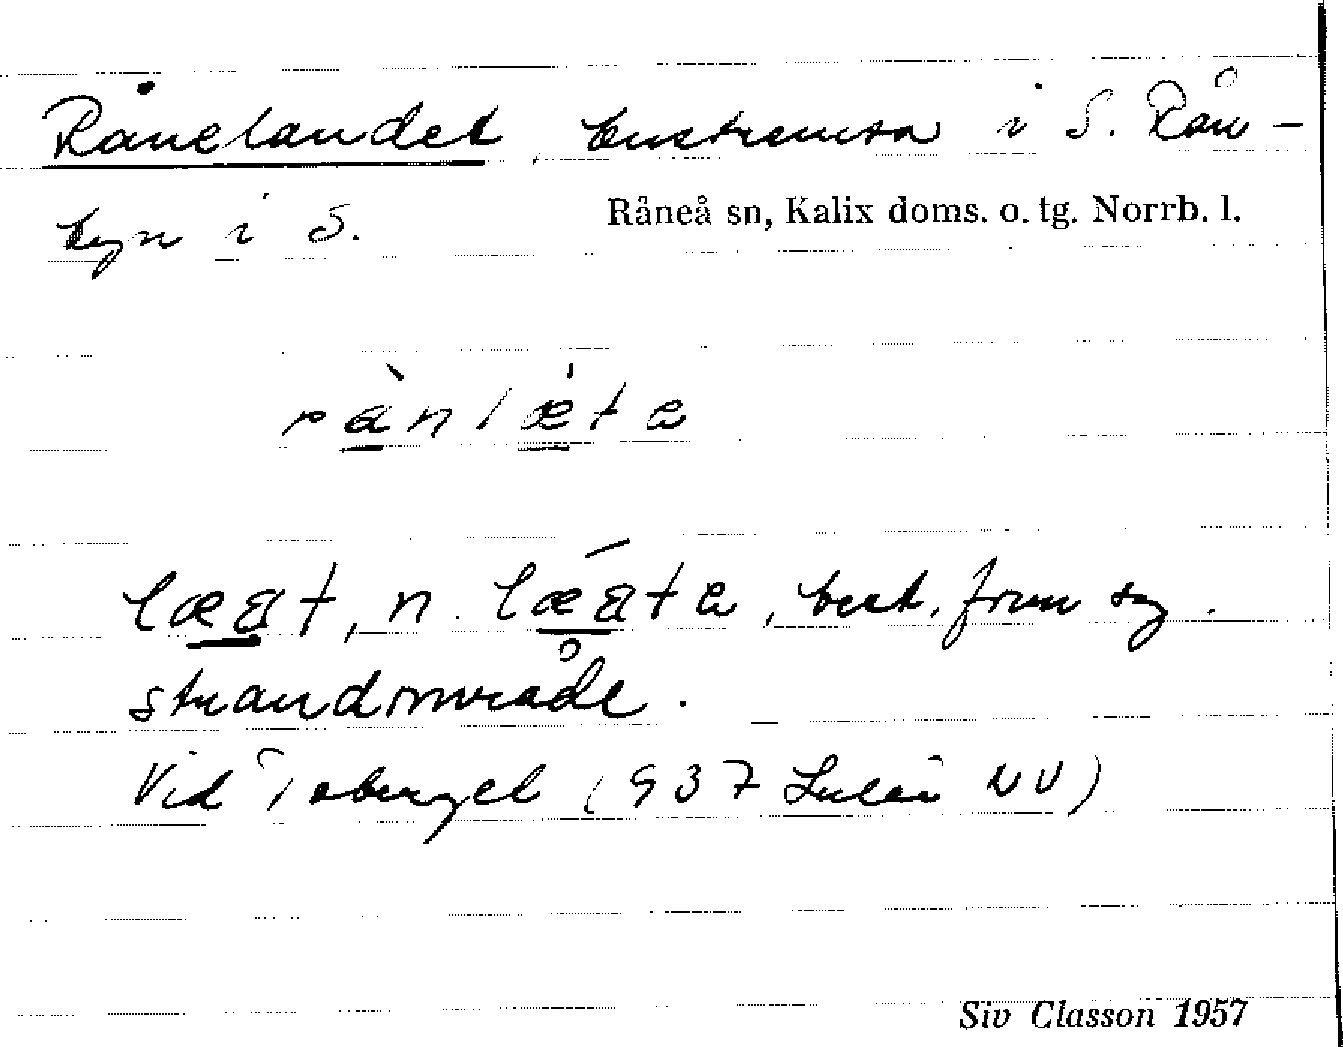 Rånelandet, kuststräcka i S. Rån-
byn i S.
Råneå sn, Kalix doms. o. tg. Norrb. l.
rànlæ̀ta
læat, n. læ̀ata, best. form sg.
strandområde.
Vid (937 Luleå NV)
Siv Classon 1957